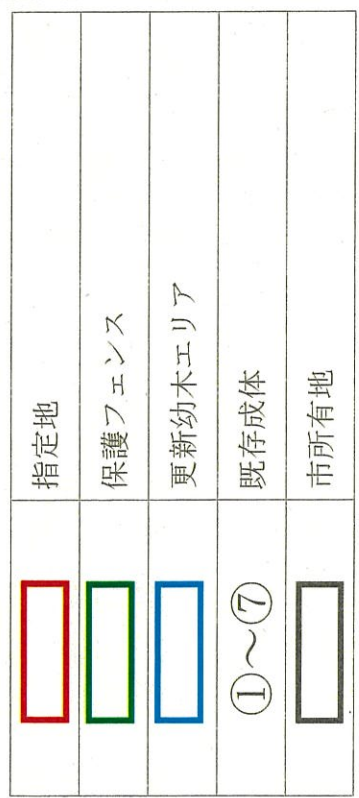 指定地
保護フェンス
更新幼木エリア
①～⑦ 既存成体
市所有地